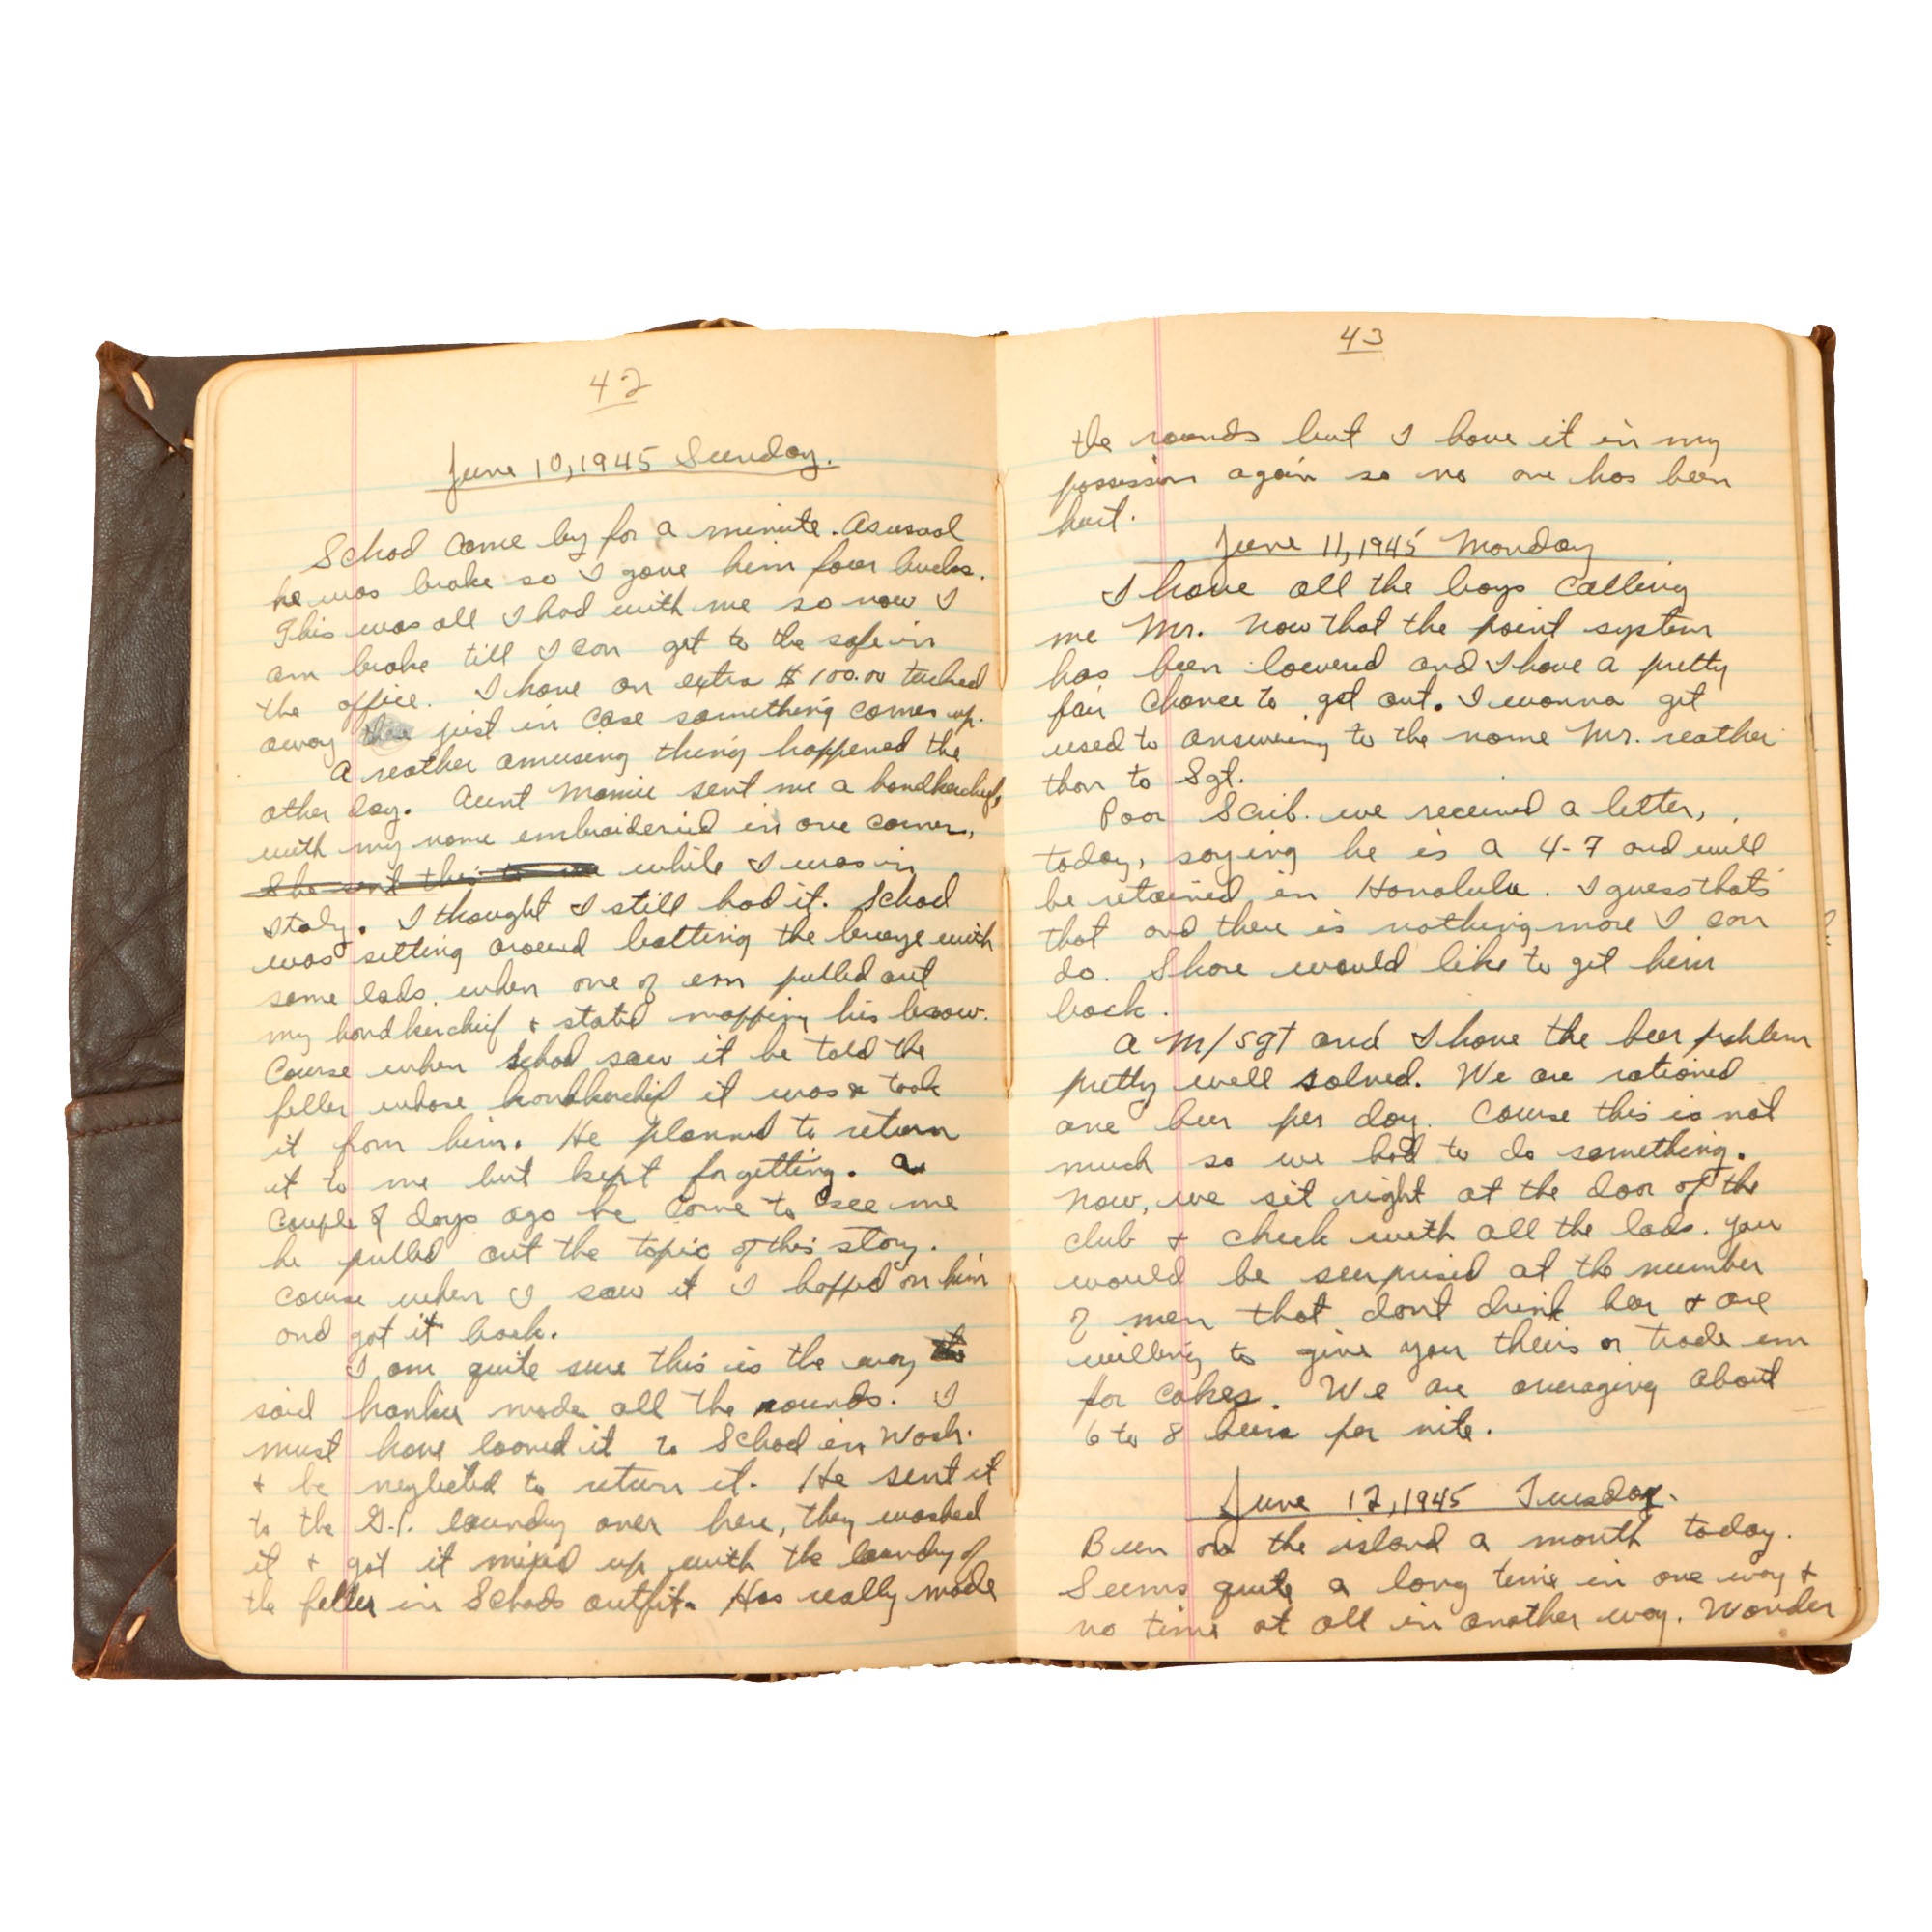 42
June 10, 1945 Sunday.
Schod came by for a minute. As usual
he was broke so I gave him four bucks.
This was all I had with me so now I
am broke till I can get to the safe in
the office. I have an extra $100.00 tucked
away just in case something comes up.
A reather amusing thing happened the
other day. Aunt Mamie sent me a handkerchief,
with my name embroideried in one corner,
She sent this to me while I was in
Italy. I thought I still had it. Schod
was sitting around batting the breeze with
some lads when one of em pulled out
my handkerchief + stated mopping his brow.
Course when Schod saw it he told the
feller whose handkerchief it was & took
it from him. He planned to return
it to me but kept forgetting. A
couple of days ago he come to see me
he pulled out the topic of this story.
Course when I saw it I hopped on him
and got it back.
I am quite sure this is the way the
said hankie made all the rounds. I
must have loaned it to Schod in Wash.
+ he neglected to return it. He sent it
to the G.I. laundry over here, they washed
it + got it mixed up with the laundry of
the feller in Schods outfit. Has really made
43
the rounds but I have it in my
possession again so no one has been
hurt.
June 11, 1945 Monday
I have all the boys calling
me Mr. now that the point system
has been lowered and I have a pretty
fair chance to get out. I wanna get
used to answering to the name Mr. reather
than to Sgt.
Poor Scrib. we received a letter,
today, saying he is a 4-7 and will
be retained in Honolulu. I guess that's
that and there is nothing more I can
do. Shore would like to get him
back.
A M/Sgt and I have the beer problem
pretty well solved. We are rationed
one beer per day. Course this is not
much so we had to do something.
Now, we sit right at the door of the
club + check with all the lads. You
would be surprised at the number
of men that don't drink beer + are
willing to give you theirs or trade em
for cokes. We are averaging about
6 to 8 beers per nite.
June 12, 1945 Tuesday.
Been on the island a month today.
Seems quite a long time in one way +
no time at all in another way. Wonder